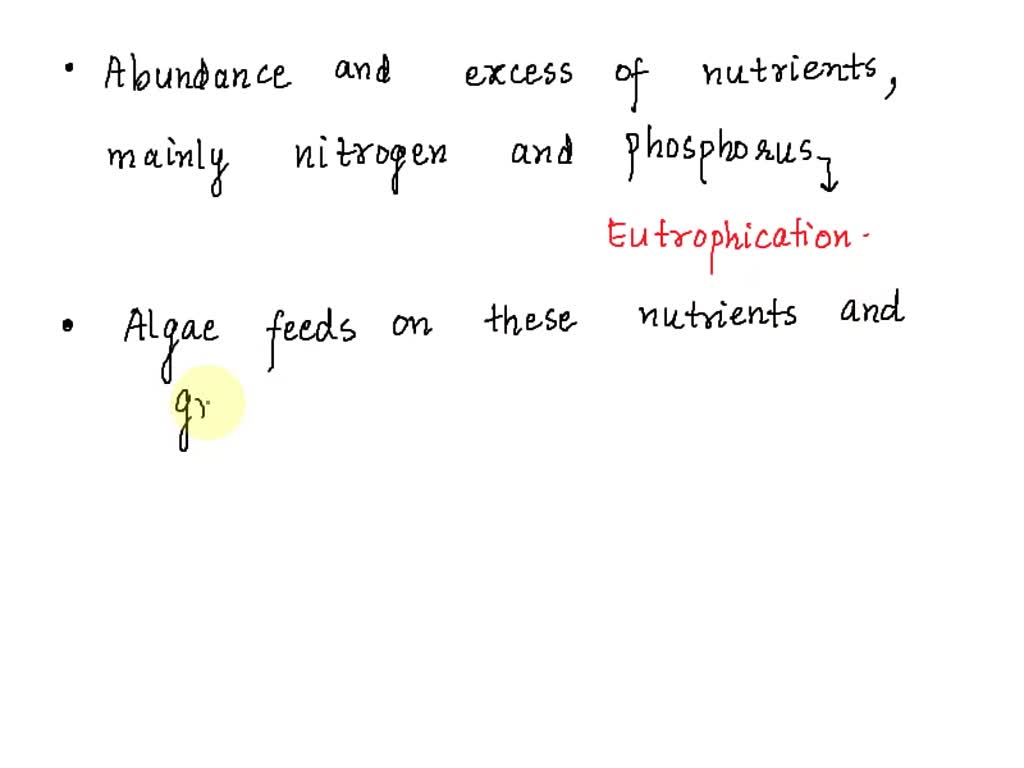 • Abundance and excess of nutrients,
mainly nitrogen and phosphorus
Eutrophication.
• Algae feeds on these nutrients and
gr